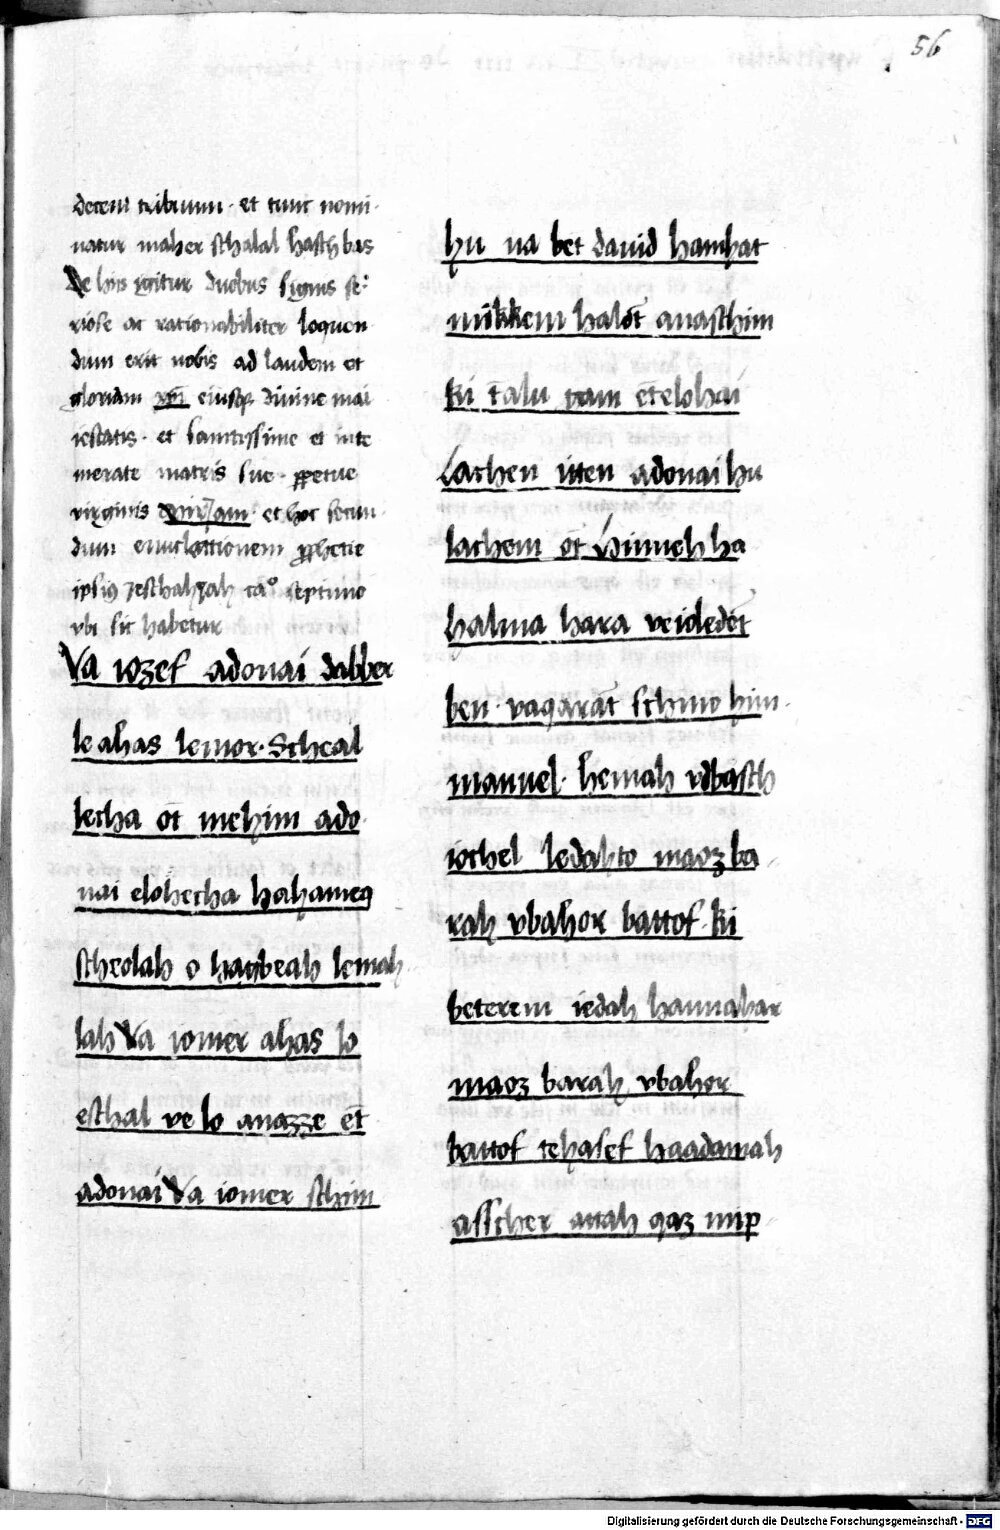 56
decem tribuum · et tunc nomi-
natur maher schalal haschbas
De hijs igitur duobus signis se-
riose ac rationabiliter loquen
dum erit nobis ad laudem et
gloriam xp̄i eiusqꝫ diuine mai
iestatis · et sanctissime et inte
merate matris sue · ꝑpetue
virginis mirjam · et hoc secun
dum enucleationem ꝓphetie
ipsius Jeschahjah cao septimo
vbi sic habetur
Va iozef adonai dabber
le ahas lemor · Scheal
lecha ot̄ mehim ado-
nai elohecha hahameq
scheolah o hagbeah lemah
lah Va iomer ahas lo
eschal ve lo anazze et̄
adonai Va iomer schim
hu na bet dauid hamhat
mikkem halot̄ anaschim
ki t̄alu gam et̄ elohai
Lachen itten adonai hu
lachem ot̄ hinneh ha
halma hara veioledet̄
ben · vaqarat̄ schmo him-
manuel · hemah vdbasch
iochel ledahto maoz ba-
rah vbahor battof · ki
beterem iedah hannahar
maoz barah vbahor
battof tehasef haadamah
asscher attah qaz mip-
Digitalisierung gefördert durch die Deutsche Forschungsgemeinschaft - DFG